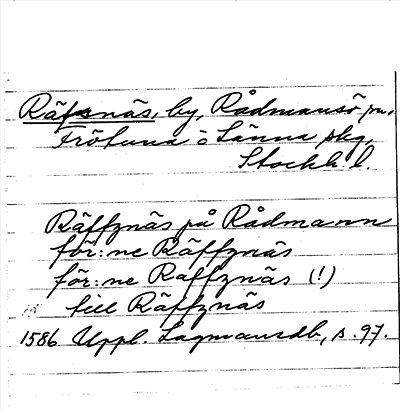 Räfsnäs, by, Rådmansö sn,
Frötuna o Länna skg,
Stockh. l.
Räffznäs på Rådmann
för:ne Räffznäs
för:ne Raffznäs (!)
till Räffznäs
1586 Uppl. Lagmansdb, s. 97.